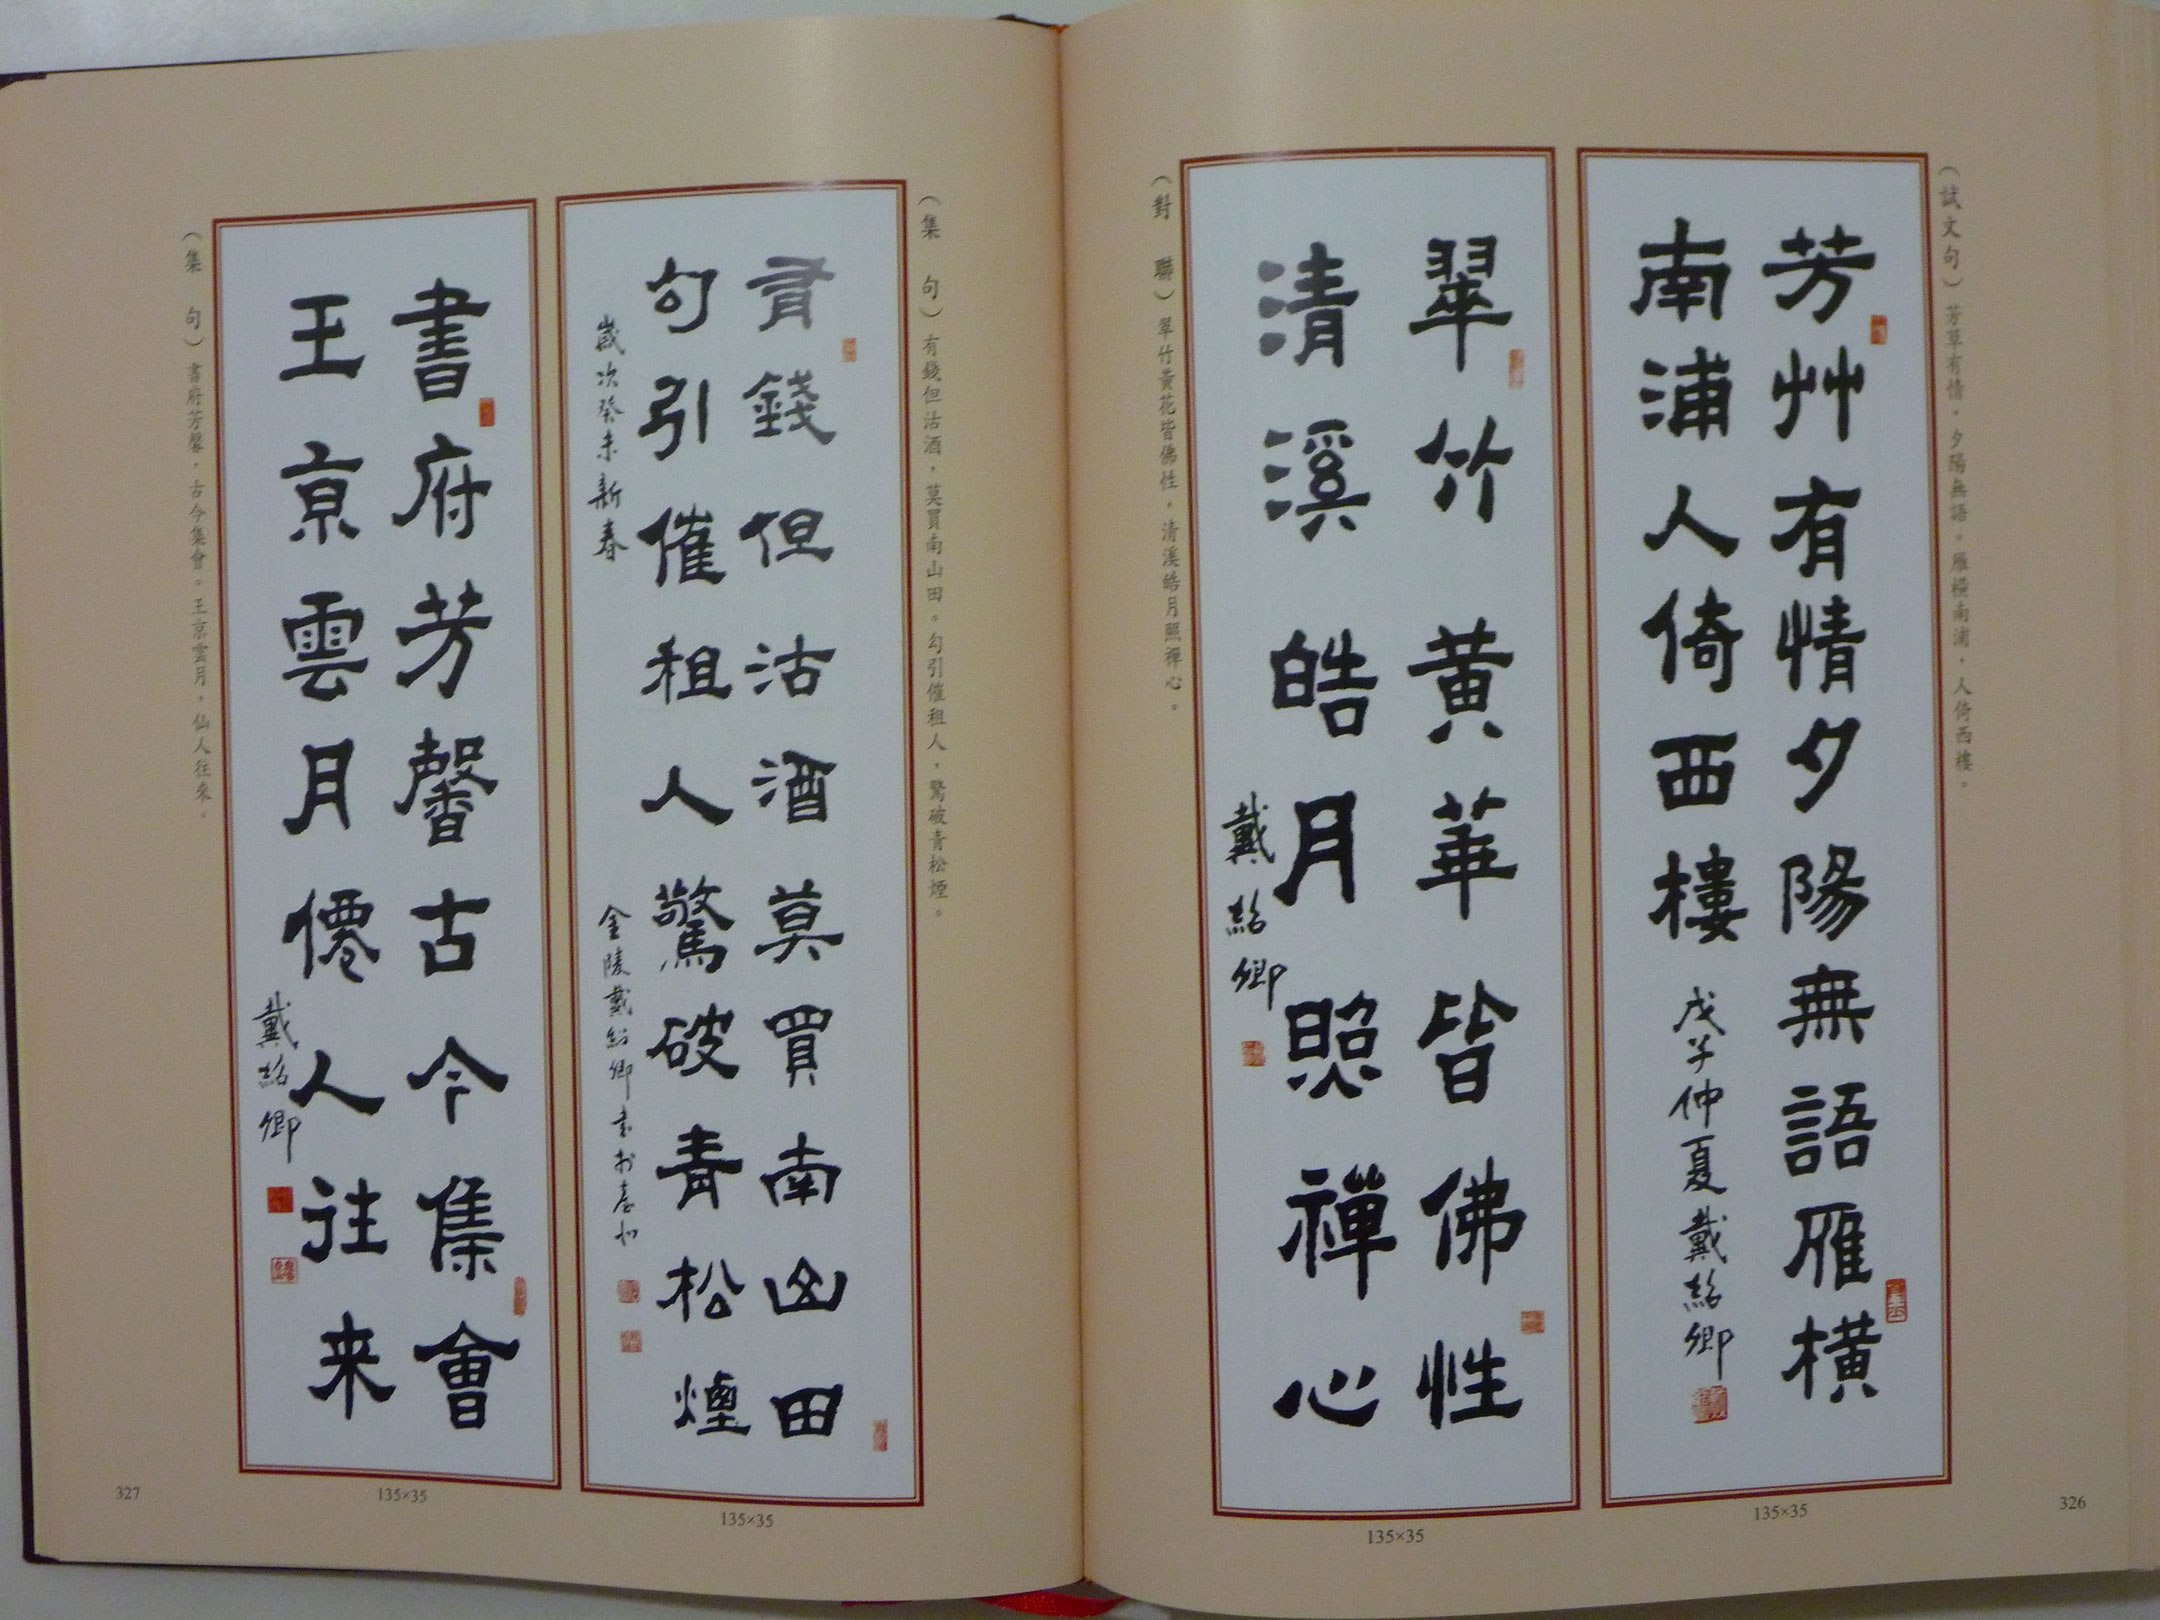 (試文句)芳草有情，夕陽無語。雁橫南浦，人倚西樓。
芳艸有情夕陽無語雁橫
南浦人倚西樓
戊子仲夏戴紹卿
135×35
(對 聯)翠竹黃花皆佛性，清溪皓月照禪心。
翠竹黃華皆佛性
清溪皓月照禪心
戴紹卿
135×35
326
(集 句)有錢但沽酒，莫買南山田。勾引催租人，驚破青松煙。
有錢但沽酒莫買南山田
句引催租人驚破青松煙
歲次癸未新春
金陵戴紹卿書於臺北
135×35
(集 句)書府芳馨，古今集會。王京雲月，仙人往來。
書府芳馨古今集會
王京雲月僊人往来
戴紹卿
135×35
327